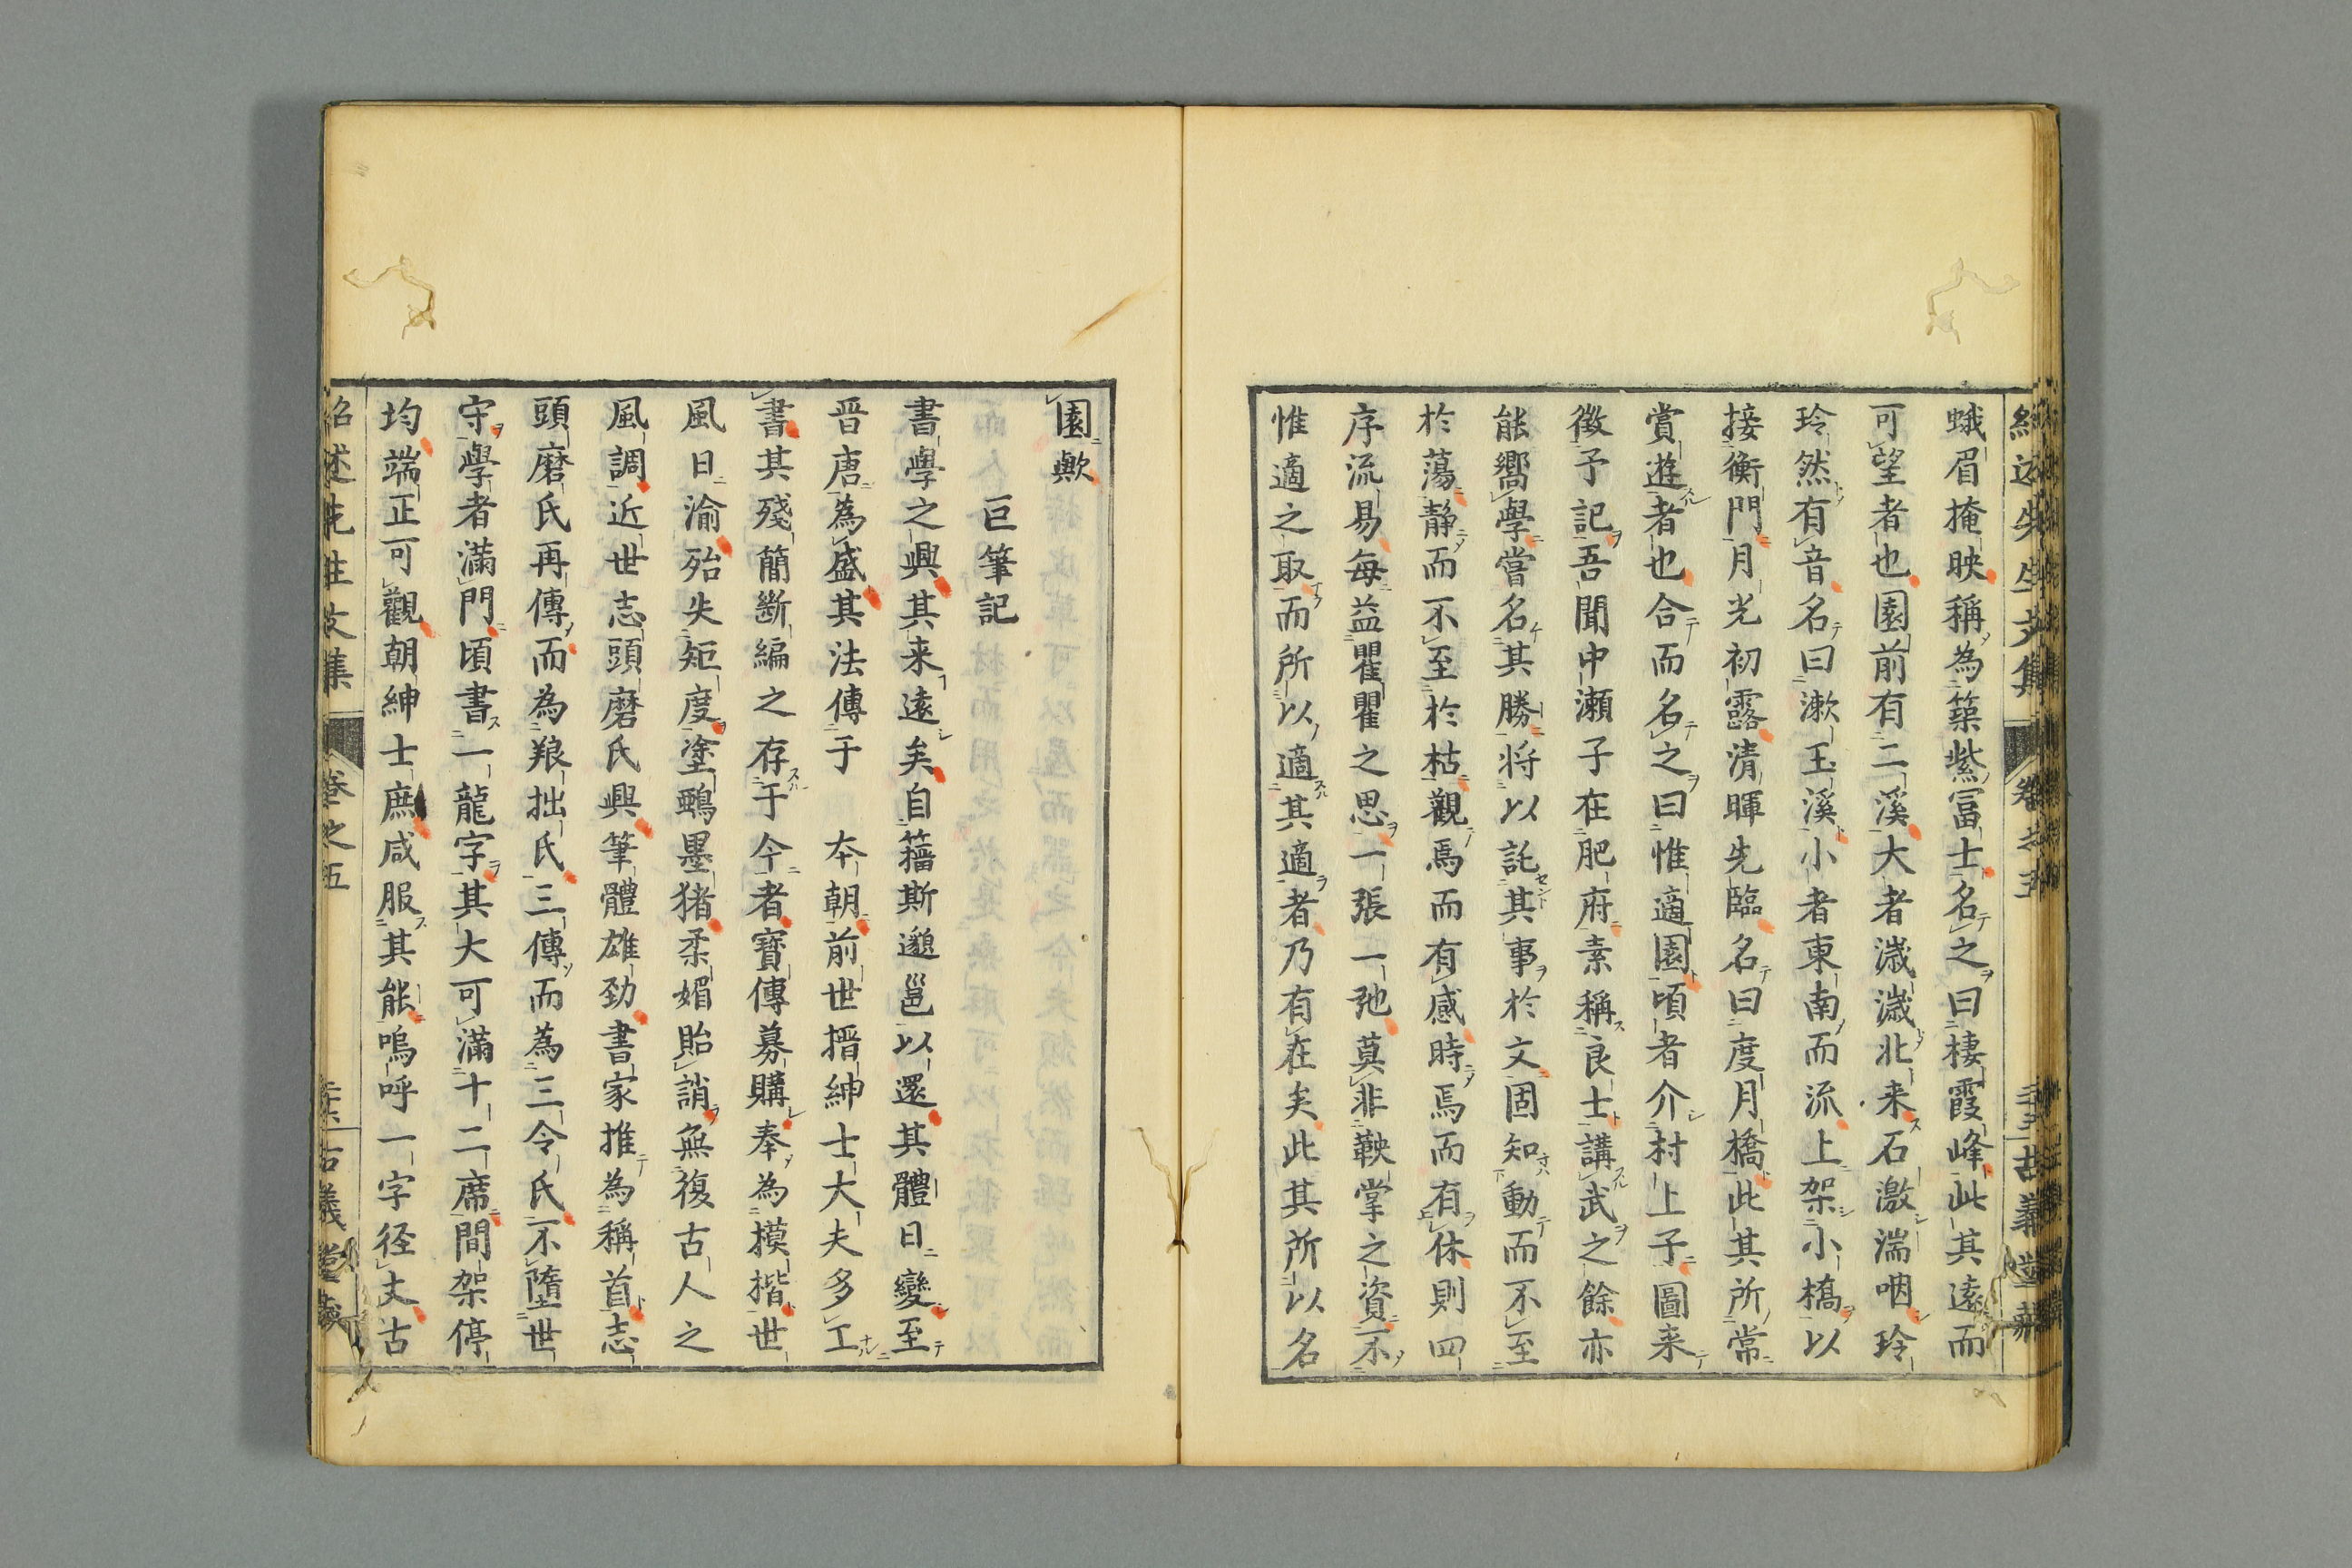 蛾眉掩映稱為築紫冨士名之曰棲霞峰此其遠而
可望者也園前有二溪大者濊濊北来石激湍咽玲
玲然有音名曰漱玉溪小者東南而流上架小橋以
接衡門月光初露清暉先臨名曰度月橋此其所常
賞遊者也合而名之曰惟適園頃者介村上子圖来
徴予記吾聞中瀬子在肥府素稱良士講武之餘亦
能嚮學嘗名其勝将以託其事於文固知動而不至
於蕩静而不至於枯觀焉而有感時焉而有休則四
序流易每益瞿瞿之思一張一弛莫非鞅掌之資不
惟適之取而所以適其適者乃有在矣此其所以名
園歟
巨筆記
書學之興其来遠矣自籀斯邈邕以還其體日變至
晋唐為盛其法傳于　本朝前世搢紳士大夫多工
書其殘簡断編之存于今者寳傳募購奉為摸揩世
風日渝殆失矩度塗鴉墨猪柔媚貽誚無復古人之
風調近世志頭磨氏興筆體雄劲書家推為稱首志
頭磨氏再傳而為粮拙氏三傳而為三令氏不墮世
守學者滿門頃書一龍字其大可滿十二席間架停
均端正可觀朝紳士庶咸服其能嗚呼一字径丈古
紹述先生文集　卷之五　古義堂藏